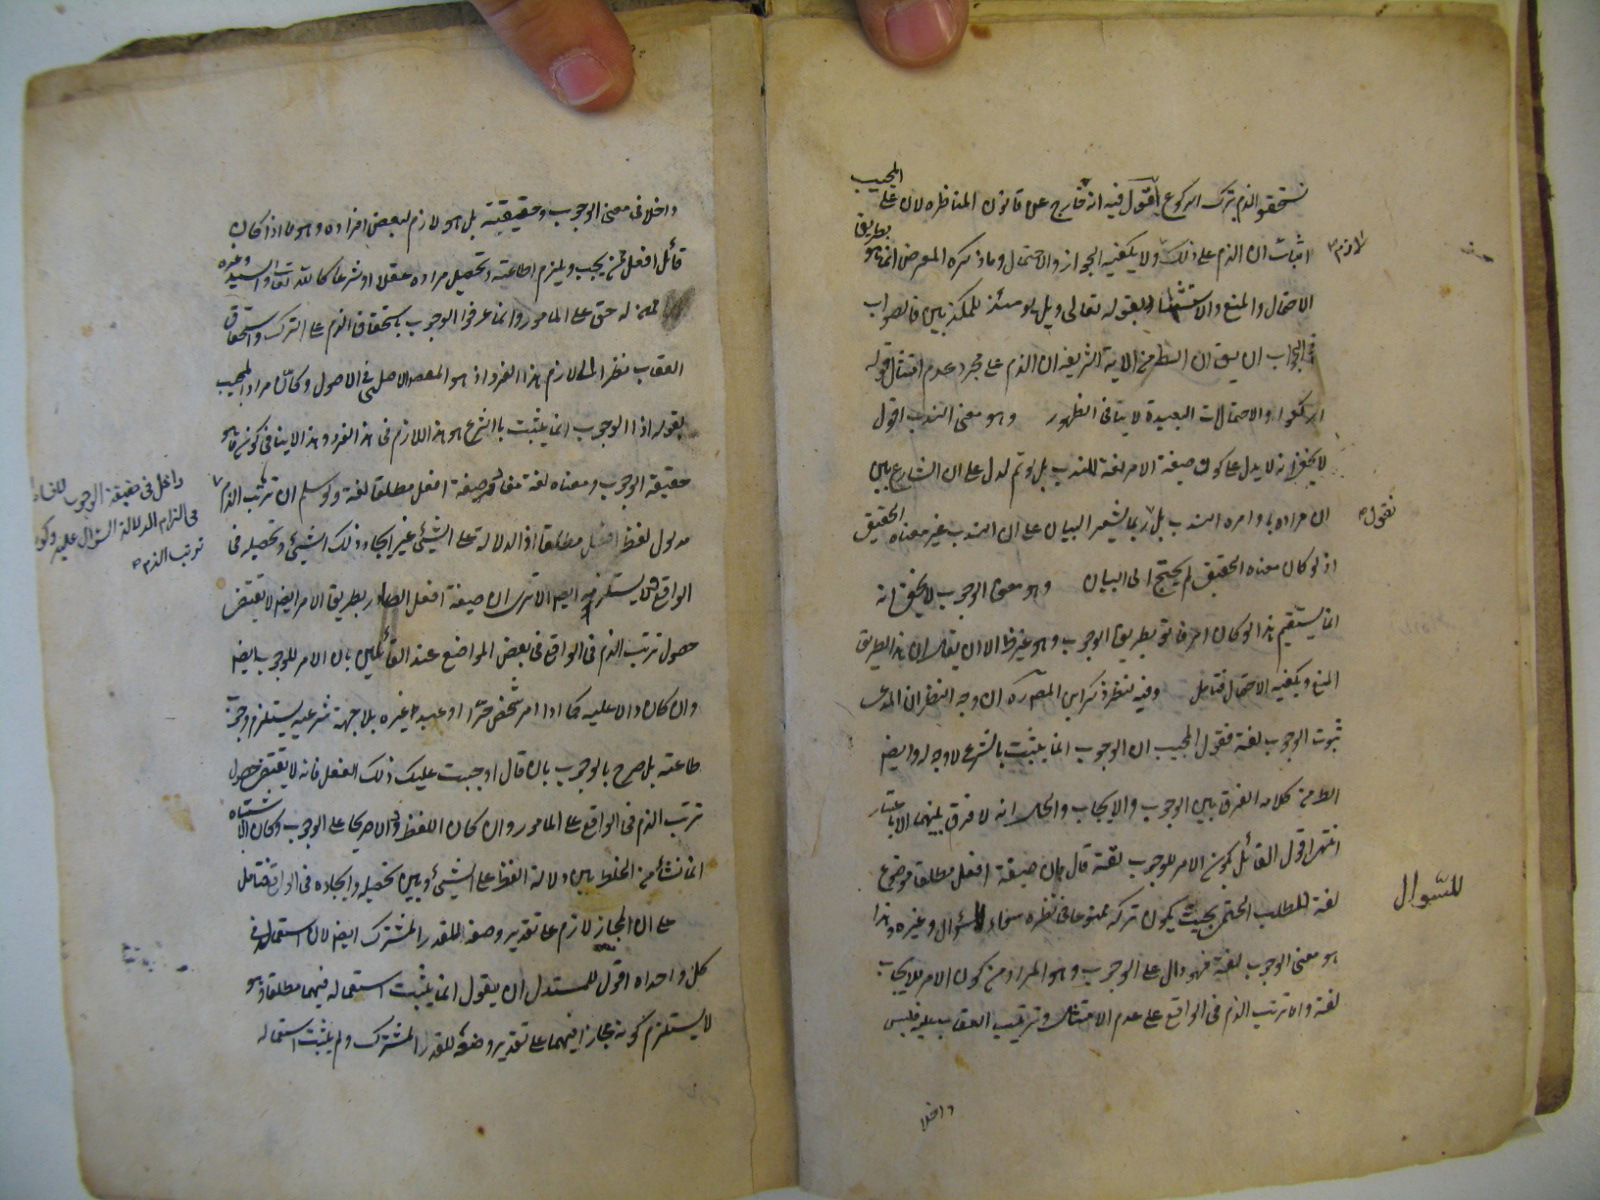 المجيب
فستحقوا الذم بترك الركوع اقول فيه انه خارج عن قانون المناظره لان على
اثبات ان الذم على ذلك ولا يكفيه الجواز والاحتمال وما ذكره المعرض انما هو بطريق
الاحتمال والمنع والاستشهاد بقوله تعالى ويل يومئذ للمكذبين فالصواب
في الجواب ان يق ان الظ من الاية الشريفه ان الذم على مجرد عدم امتثال قوله
اركعوا والاحتمالات البعيدة لا ينافى الظهور وهو معنى الندب اقول
لا يخفى انه لا يدل على كون صيغة الامر لغة للندب بل لو تم لدل على ان الشارع بين
ان مراده باوامره الندب بل ربما يشعر البيان على ان الندب غير معناه الحقيقى
اذ لو كان معناه الحقيقى لم يحتج الى البيان وهو معنى الوجوب لا يخفى انه
انما يستقيم هذا لو كان امر فاتوا بطريق الوجوب وهو غير ظ الا ان يقال ان هذا بطريق
المنع ويكفيه الاحتمال فتامل وفيه نظر ذكر ابن المصره ان وجه النظر ان المدعى
ثبوت الوجوب لغة فقول المجيب ان الوجوب انما يثبت بالشرع لا وجه له وايضا
الظ من كلامه الفرق بين الوجوب والايجاب والحال انه لا فرق بينهما الا باعتبار
انتهى اقول القائل بكون الامر للوجوب لغة قال بان صيغة افعل مطلقا موضوع
لغة للطلب الحتمى بحيث يكون تركه ممنوعا فى نظره سواء السؤال وغيره وهذا
هو معنى الوجوب لغة فهو دال على الوجوب وهو المراد من كون الامر للايجاب
لغة والا ترتب الذم فى الواقع على عدم الامتثال وترتيب العقاب عليه فليس
لازم
نقول
للسؤال
داخلا
داخلا فى معنى الوجوب وحقيقية بل هو لازم لبعض افراده وهو ما اذا كان
قائل افعل ممن يجب ويلزم اطاعته وتحصيل مراده عقلا او شرعا كالله تعالى والسيد وغيره
ممن له حق على المامور وانما عرفوا الوجوب باستحقاق الذم على الترك واستحقاق
العقاب نظرا الى لازم هذا الفرد اذ هو المقصد الاصلى فى الاصول وكان مراد المجيب
بقوله اذا الوجوب انما يثبت بالشرع هو هذا اللازم فى هذا الفرد وهذا لا ينافى كونه ما هو
حقيقة الوجوب ومعناه لغة مفاد صيغة افعل مطلقا لغة ولو سلم ان ترتب الذم
مدلول لفظ افعل مطلقا اذ الدلالة على الشيئ غير ايجاد ذلك الشيئ وتحصيله فى
الواقع ولا يستلزمه ايضا الا ترى ان صيغة افعل الصادر بطريق الامر ايضا لا يقتضى
حصول ترتب الذم فى الواقع فى بعض المواضع عند القائلين بان الامر للوجوب ايضا
وان كان دالا عليه كما اذا امر شخص حرا او عبد غيره بلا جهة شرعيه يستلزم وجوب
طاعته بل صرح بالوجوب بان قال اوجبت عليك ذلك الفعل فانه لا يقتضى حصول
ترتب الذم فى الواقع على المامور وان كان اللفظ دالا صريحا على الوجوب وكان الاشتباه
انما نشأ من الخلط بين دلالة اللفظ على الشيئ وبين تحصيله وايجاده فى الواقع فتامل
على ان المجاز لازم على تقدير وضعه للقدر المشترك ايضا لان استعماله فى
كل واحد اه اقول للمستدل ان يقول انما يثبت استعماله فيهما مطلقا وهو
لا يستلزم كونه مجازا فيهما على تقدير وضعه للقدر المشترك ولم يثبت استعماله
داخل فى حقيقة الوجوب
فى التزام الدلالة السؤال عليه
ترتب الذم